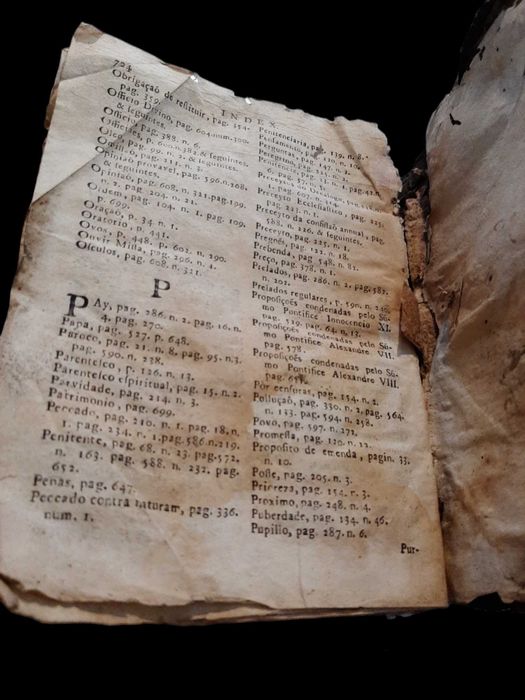 724
INDEX
Obrigaçaõ de restituir, pag. 354.
pag. 359.
Officio Divino, pag. 604. num. 300.
& seguintes.
pag. 388. n. 6.
& seguintes.
Oleo, pag. 99. n. 2. & seguintes.
pag. 211. n. 3.
Opiniaõ provavel, pag. 596. n. 268.
& seguintes.
Opiniaõ, pag. 608. n. 321. pag. 199.
n. 2. pag. 204. n. 21.
Ordem, pag. 104. n. 1. pag. 109.
p. 699.
Oraçaõ, p. 34. n. 1.
Oratorio, p. 441.
Ovos, p. 448. p. 602. n. 290.
Ouvir Missa, pag. 296. n. 4.
Osculos, pag. 608. n. 321.
P
PAy, pag. 286. n. 2. pag. 16. n.
4. pag. 270.
Papa, pag. 527. p. 648.
Paroco, pag. 11. n. 8. pag. 95. n. 3.
pag. 590. n. 238.
Parentesco, p. 126. n. 13.
Parentesco espiritual, pag. 15. n. 2.
Parvidade, pag. 214. n. 3.
Patrimonio, pag. 699.
Peccado, pag. 210. n. 1. pag. 18. n.
1. pag. 234. n. 1. pag. 586. n. 219.
Penitente, pag. 68. n. 23. pag. 572.
n. 163. pag. 588. n. 232. pag.
652.
Penas, pag. 647.
Peccado contra naturam, pag. 336.
num. 1.
Penitenciaria, pag. 139. n. 8.
Pensamento, pag. 110. n. 10.
pag. 147. n. 1.
Preceito Ecclesiastico, pag. 225.
pag. 213. n. 1.
Preceyto da confissaõ annual, pag.
588. n. 226. & seguintes.
Preceyto, pag. 225. n. 1.
pag. 122. n. 18.
Prebenda, pag. 548. n. 82.
Preço, pag. 378. n. 1.
Prelados, pag. 286. n. 2. pag. 582.
n. 202.
Prelados regulares, p. 590. n. 240.
Proposições condenadas pelo Su-
mo Pontifice Innocencio XI.
pag. 519. pag. 64. n. 13.
Proposições condenadas pelo Su-
mo Pontifice Alexandre VII.
pag. 578.
Proposições condenadas pelo Su-
mo Pontifice Alexandre VIII.
pag. 651.
Por censuras, pag. 154. n. 2.
Polluçaõ, pag. 330. n. 2. pag. 564.
n. 133. pag. 594. n. 258.
Povo, pag. 597. n. 272.
Promessa, pag. 120. n. 12.
Proposito de emenda, pagin. 33.
n. 10.
Posse, pag. 205. n. 3.
pag. 154. n. 3.
Proximo, pag. 248. n. 4.
Puberdade, pag. 134. n. 46.
Pupillo, pag. 287. n. 6.
Pur-